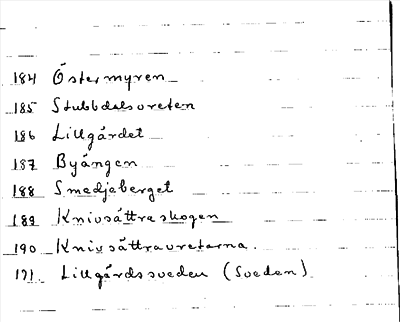 184 Östermyren
185 Stubbdalsvreten
186 Lillgärdet
187 Byängen
188 Smedjeberget
189 Knivsättraskogen
190 Knivsättravretarna.
191 Lillgårdssveden (Sveden)